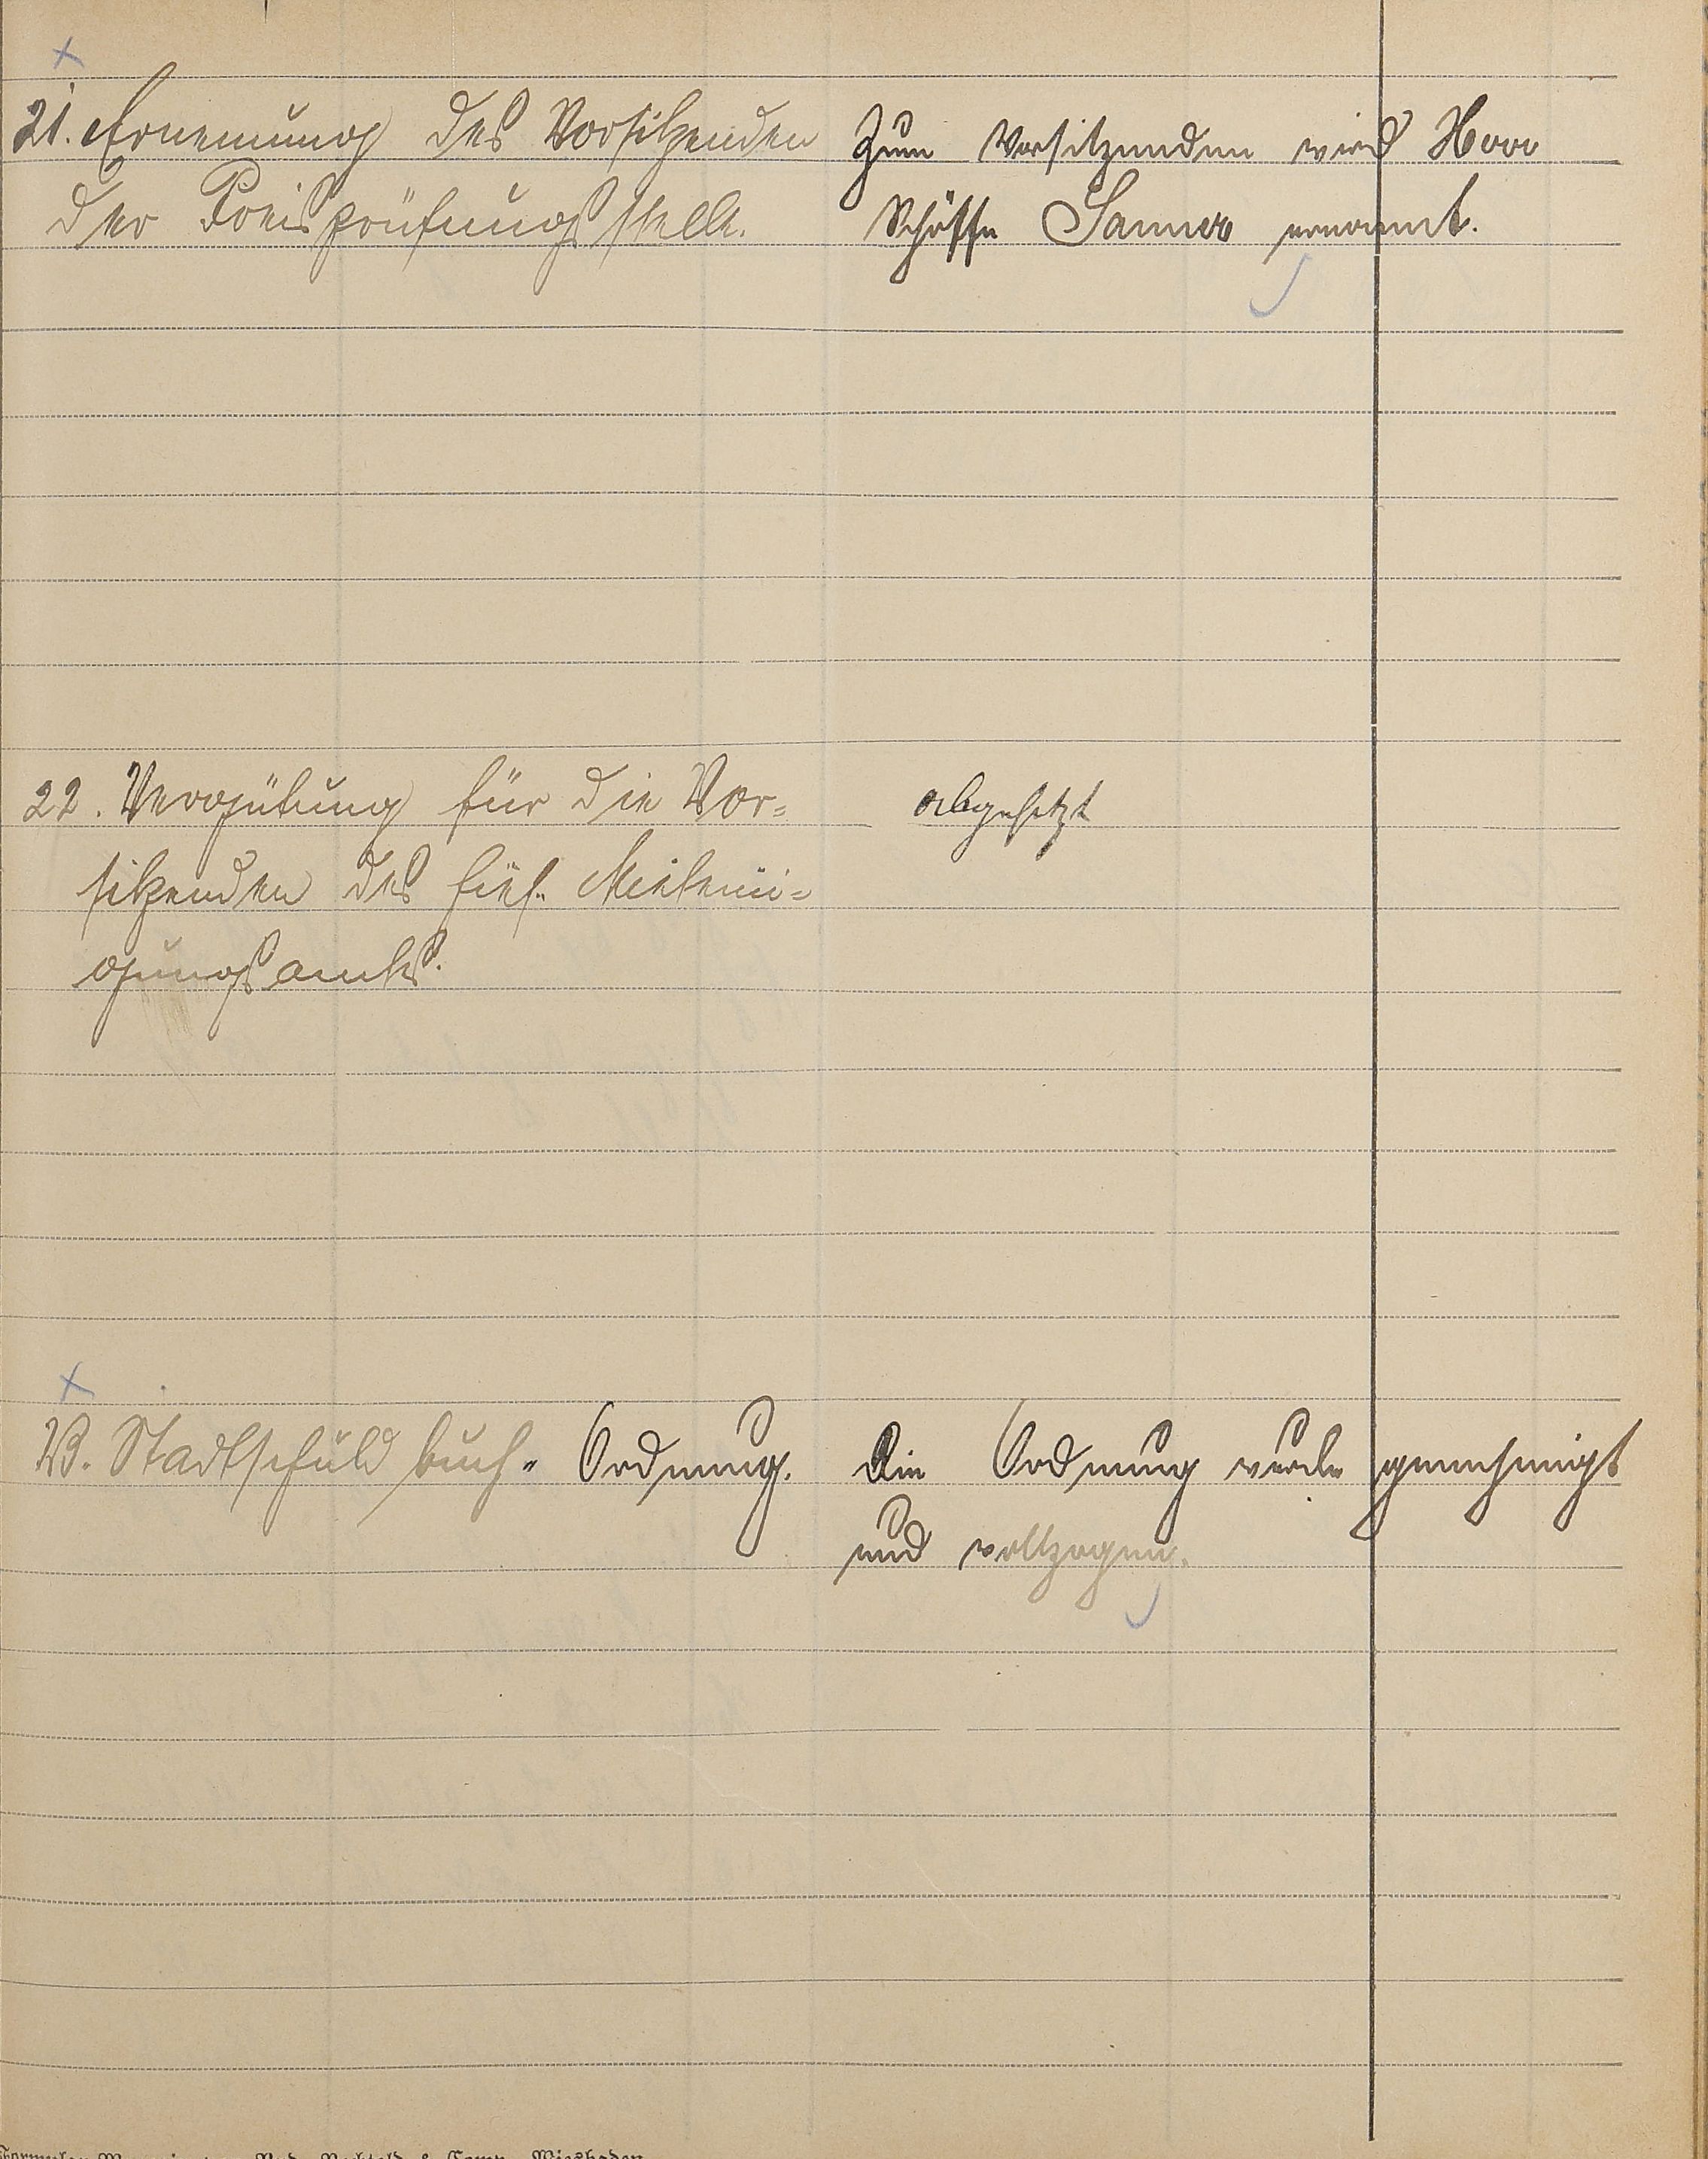 21. Ernennung des Vorsitzenden
der Preisprüfungsstelle.
Zum Vorsitzenden wird Herr
Schöffe Sanner ernannt.
22. Vergütung für die Vor=
sitzenden des hies. Mieteini=
gungsamts.
abgesetzt
23. Stadtschuldbuch-Ordnung.
Die Ordnung wurde genehmigt
und vollzogen.
& Comp. Wiesbaden